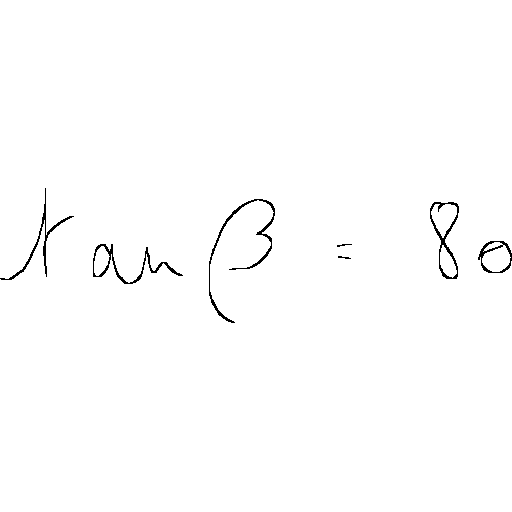 tan β = 80